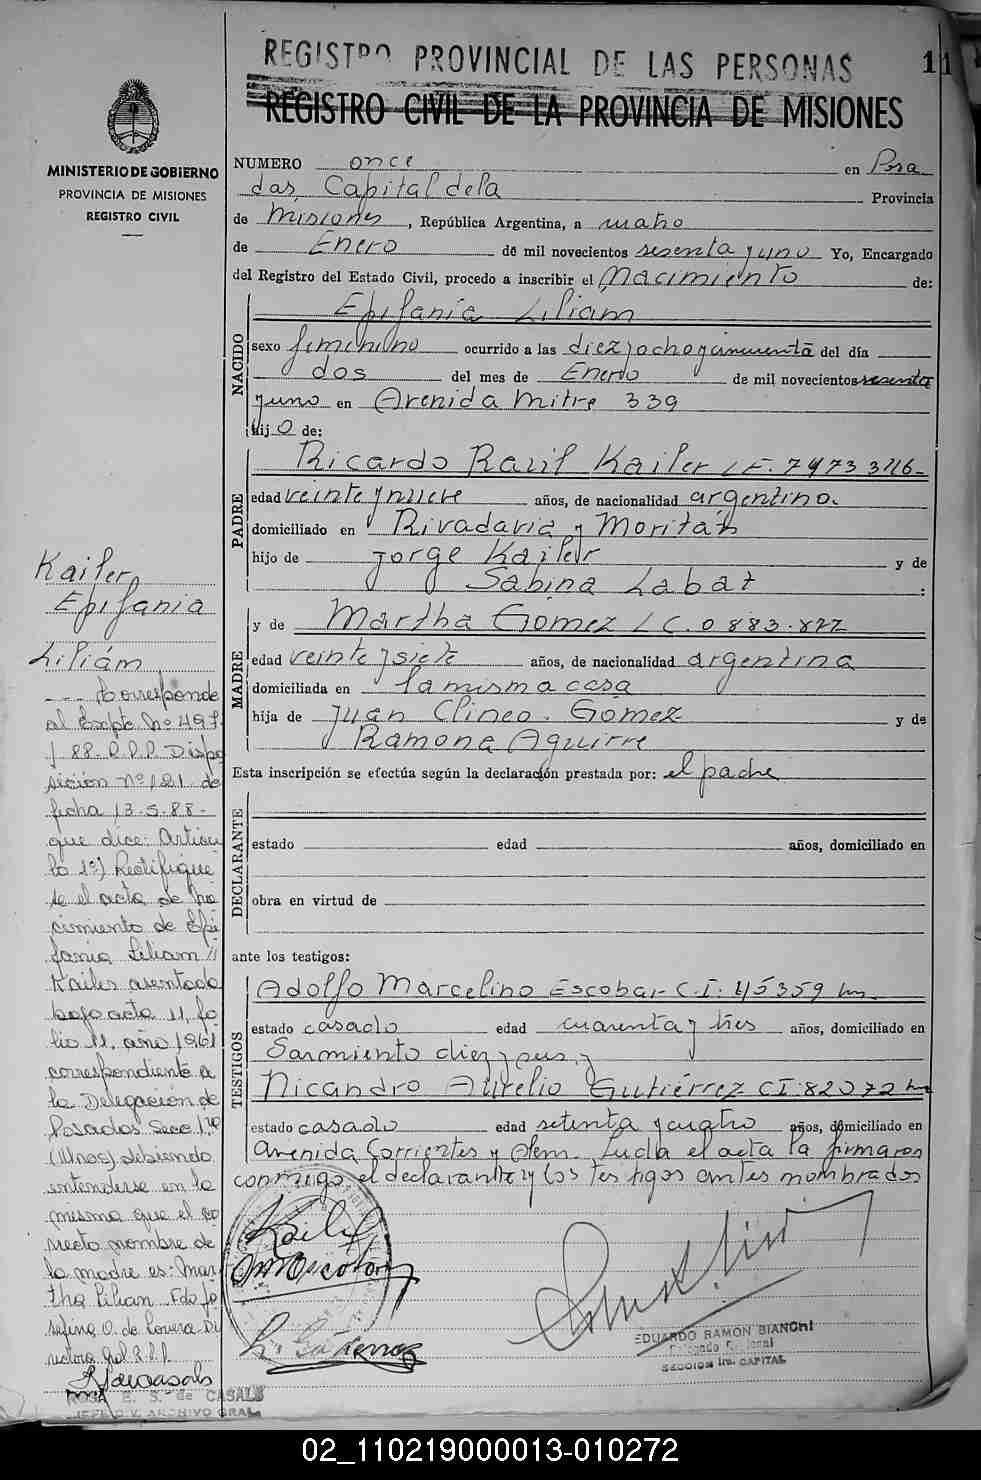 REGISTRO PROVINCIAL DE LAS PERSONAS
11
REGISTRO CIVIL DE LA PROVINCIA DE MISIONES
MINISTERIO DE GOBIERNO
PROVINCIA DE MISIONES
REGISTRO CIVIL
NUMERO once en Posa
das, Capital de la Provincia
de Misiones, República Argentina, a cuatro
de Enero de mil novecientos sesenta y uno Yo, Encargado
del Registro del Estado Civil, procedo a inscribir el Nacimiento de:
NACIDO
Epifanía Liliám
sexo femenino ocurrido a las diez y ocho y cincuenta del día
dos del mes de Enero de mil novecientos sesenta
y uno en Avenida Mitre 339
hijo de:
PADRE
Ricardo Raúl Kailer L.E. 7473
edad veinte y nueve años, de nacionalidad argentino.
domiciliado en Rivadavia y Moritán
hijo de Jorge Kailer y de
Sabina Labat :
MADRE
y de Martha Gomez L C. 0883.
edad veinte y siete años, de nacionalidad argentina
domiciliada en la misma casa
hija de Juan Clineo. Gómez y de
Ramona Aguirre
Esta inscripción se efectúa según la declaración prestada por: el padre
DECLARANTE
estado edad años, domiciliado en
obra en virtud de
ante los testigos:
TESTIGOS
Adolfo Marcelino Escobar C.I: 45359
estado casado edad cuarenta y tres años, domiciliado en
Sarmiento diez y seis y
Nicandro Aurelio Gutiérrez CI:82072
estado casado edad setenta y cuatro años, domiciliado en
Avenida Corrientes y Leída el acta la firmaron
conmigo, el declarante y los testigos antes nombrados
Kailer
Epifania
Liliám
--- Corresponde
al Expte. Nº 497
/ 88-R.P.P. Dispo
sición nº 121 de
fecha 13-5-88-
que dice: Artícu
lo 1º) Rectifíque
se el acta de na
cimiento de Epi
fania Liliam
Kailer asentada
bajo acta 11, fo
lio 11, año 1961
correspondiente a
la Delegación de
Posadas Secc. 1ra
debiendo
entenderse en la
misma que el co
rrecto nombre de
la madre es: Mar
tha Lilian. Fdo Jo
sefina O. de Lovera Di
rectora Gral R.P.P.
ROSA E. S. de CASALS
JEFE DIV. ARCHIVO GRAL.
Kailer
EDUARDO RAMON BIANCHI
SECCION 1ra. CAPITAL
02_110219000013-010272